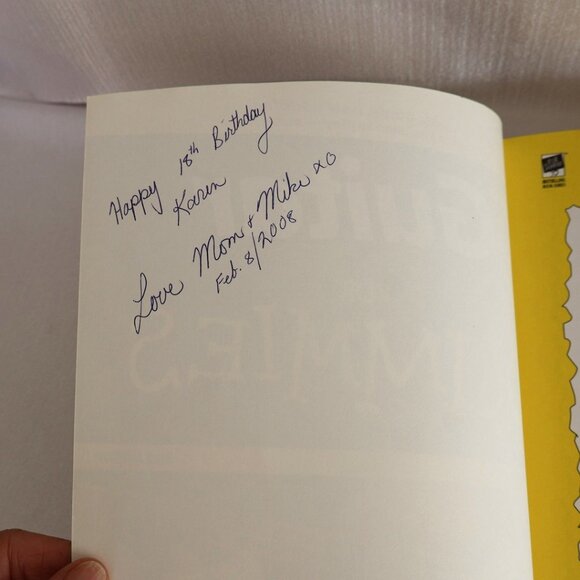 Happy 18th Birthday
Karen
Love Mom & Mike xo
Feb. 8/2008